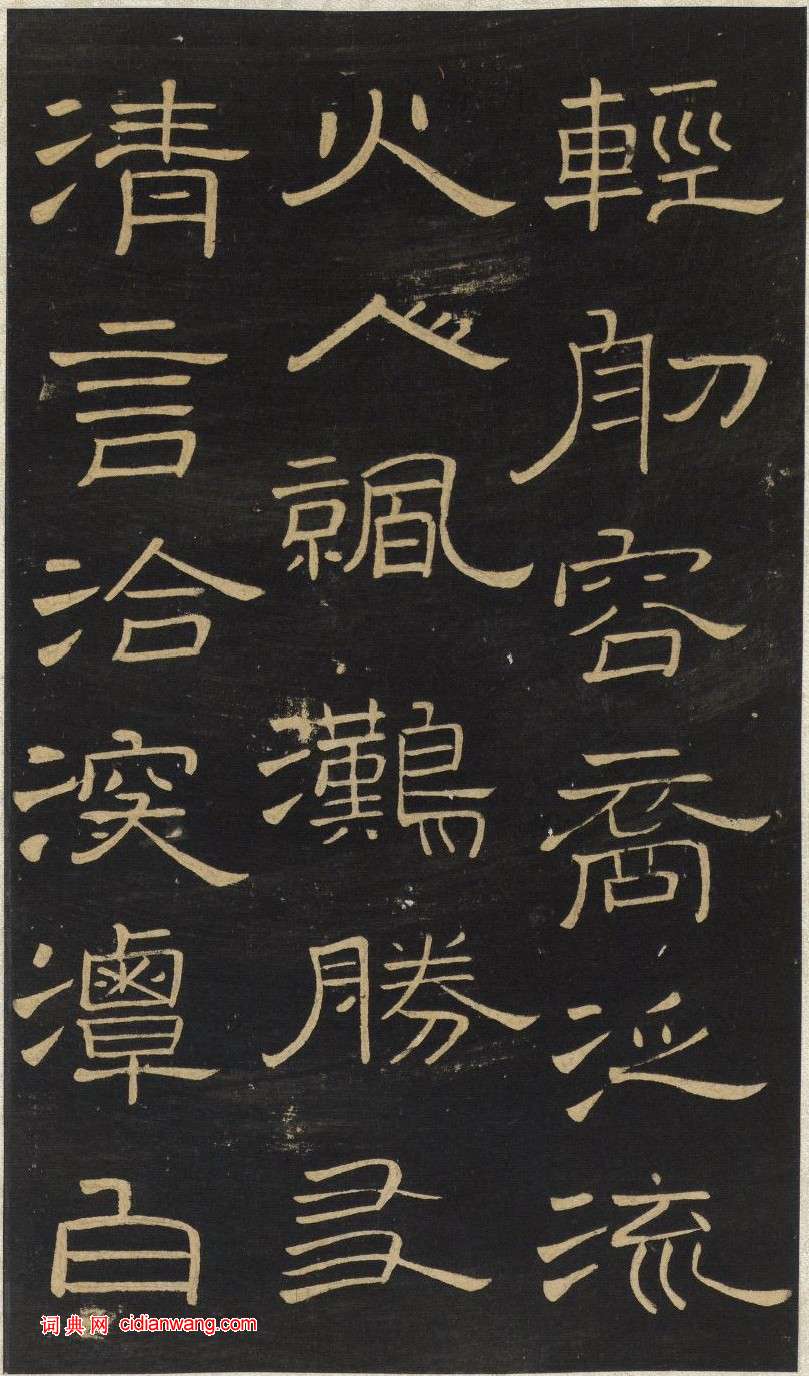 輕舠容裔泛流
火灘勝友
清言洽深潭白
词典网 cidianwang.com